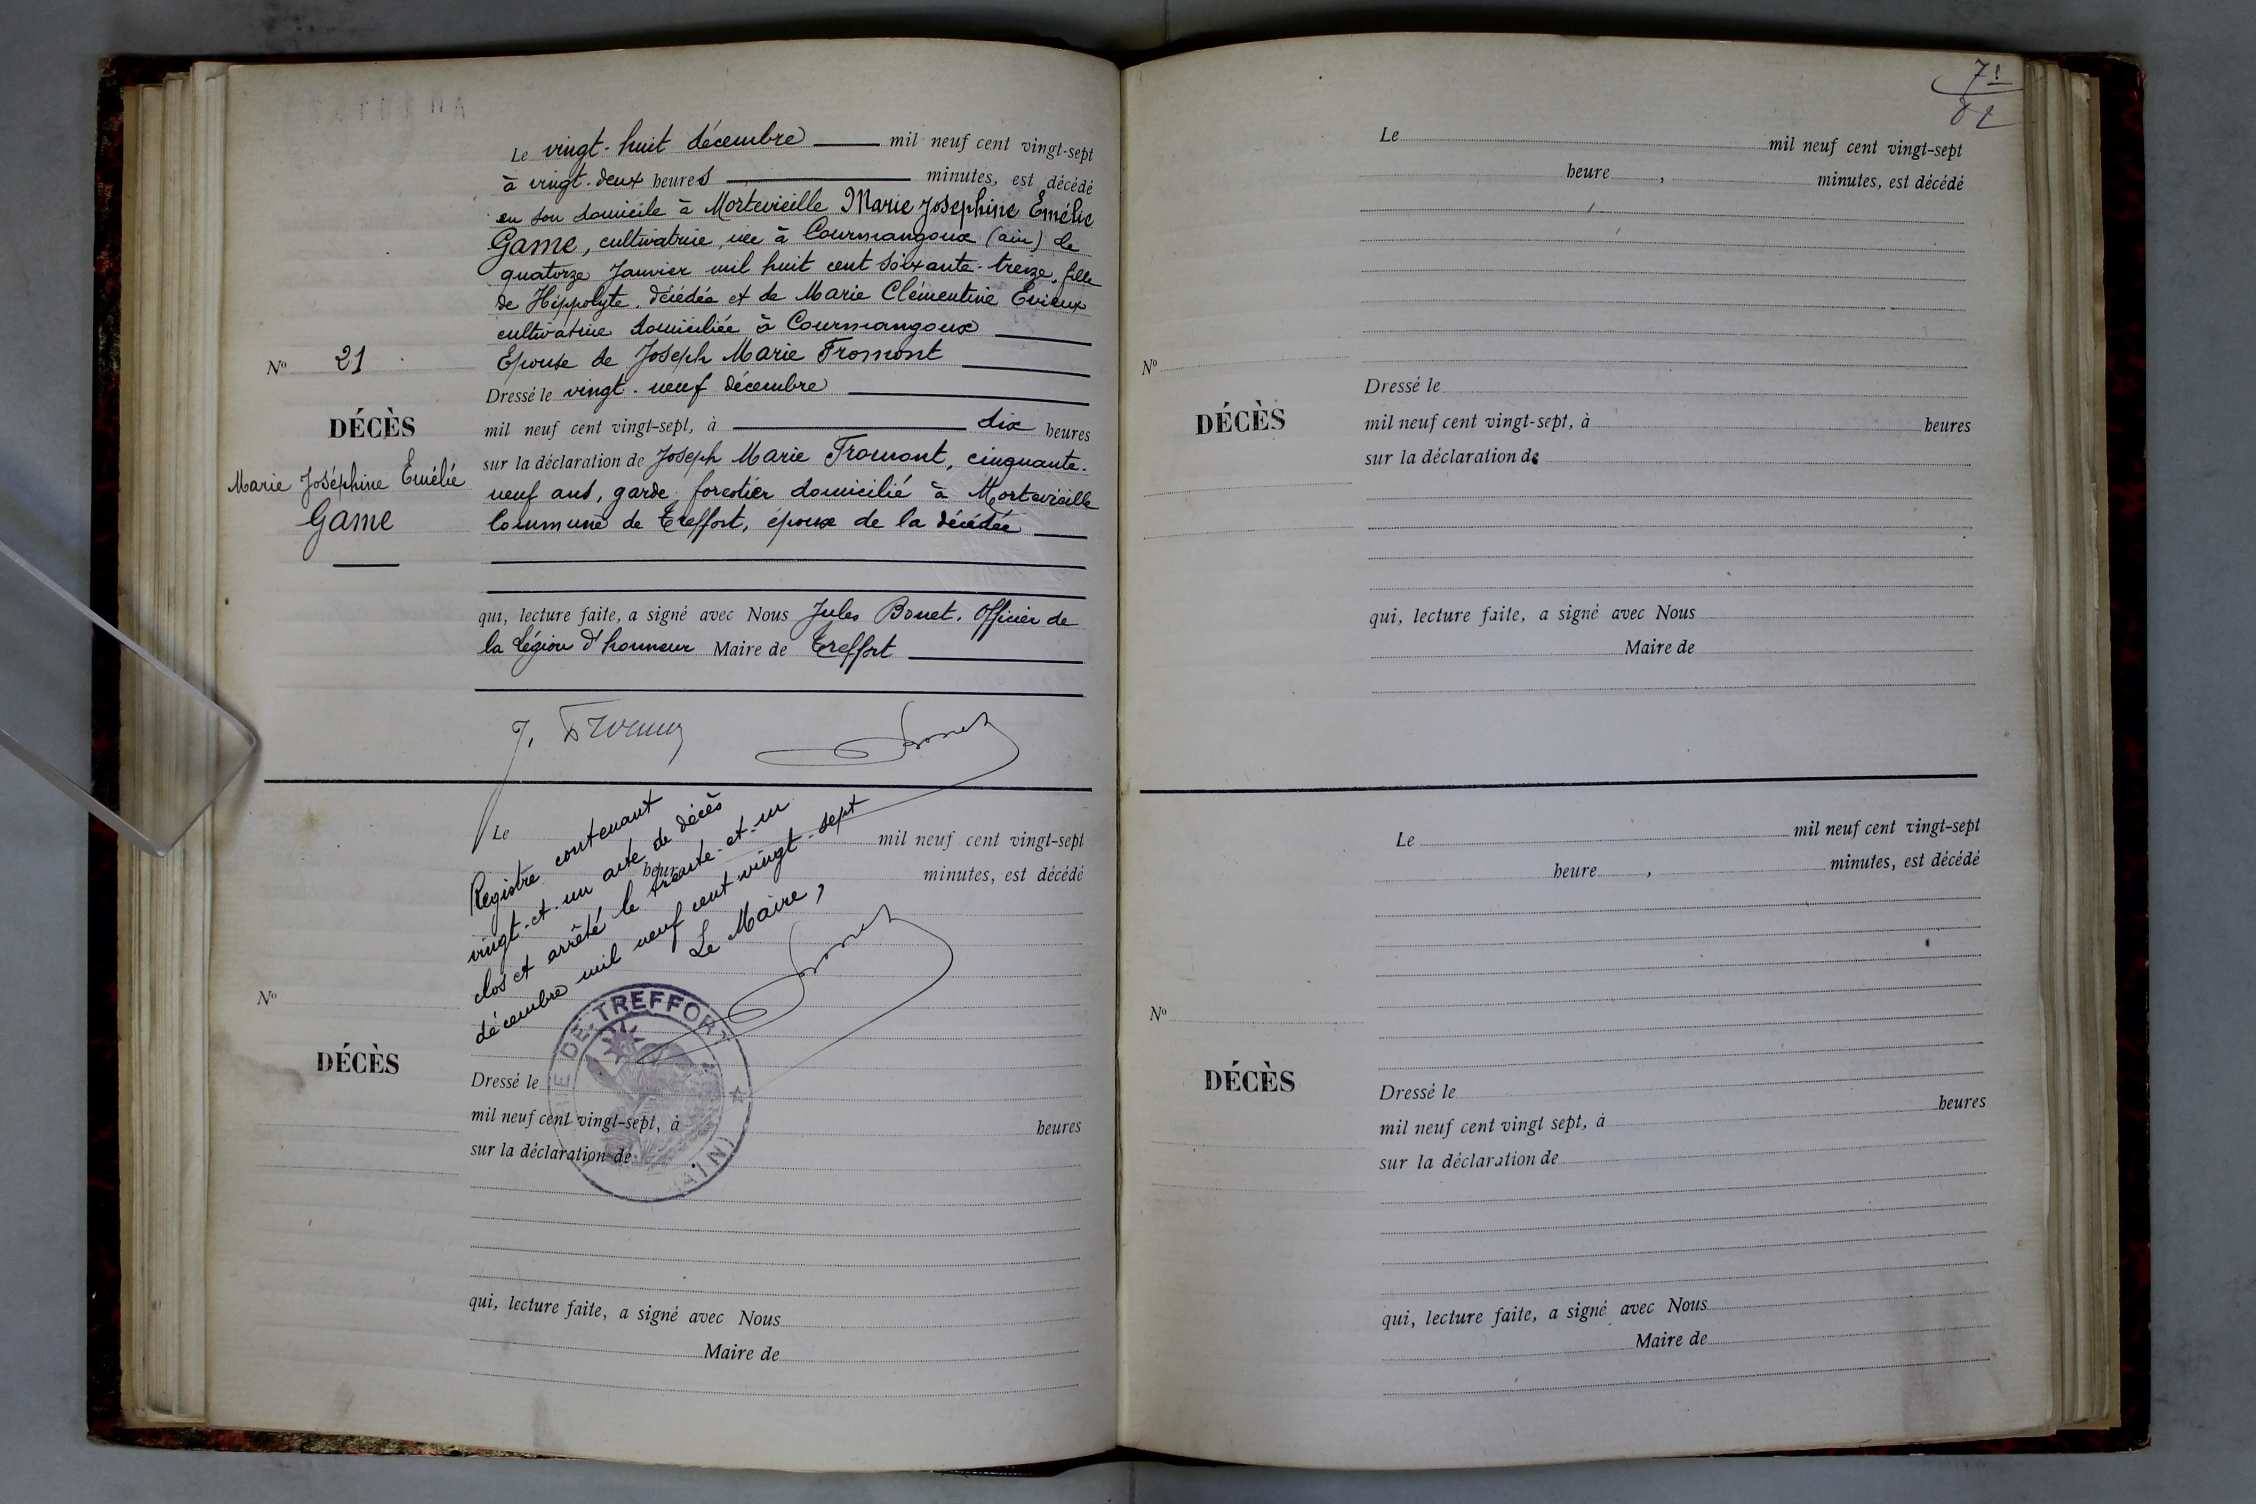 Le vingt-huit décembre mil neuf cent vingt-sept
à vingt-deux heures minutes, est décédé
en son domicile à Mortevieille Marie Josephine Emélie
Game, cultivatrice, née à Courmangoux (ain) le
quatorze Janvier mil huit cent soixante-treize, fille
de Hippolyte, décédée et de Marie Clémentine Evieux
cultivatrice domiciliée à Courmangoux
Epouse de Joseph Marie Fromont
Nº 21
Dressé le vingt-neuf décembre
DÉCÈS
mil neuf cent vingt-sept, à dix heures
Marie Joséphine Emélie
Game
sur la déclaration de Joseph Marie Fromont, cinquante-
neuf ans, garde forestier domicilié à Mortevieille
Commune de Treffort, époux de la décédée
qui, lecture faite, a signé avec Nous Jules Bonet, Officier de
la Légion d'honneur Maire de Treffort
J. Fromont
Bonet
Le mil neuf cent vingt-sept
heure minutes, est décédé
Registre contenant
vingt-et-un acte de décès
clos et arrêté le trente-et-un
décembre mil neuf cent vingt-sept
Le Maire,
Bonet
DE TREFFORT
(AIN)
Nº
DÉCÈS
Dressé le
mil neuf cent vingt-sept, à heures
sur la déclaration de
qui, lecture faite, a signé avec Nous
Maire de
71
Le mil neuf cent vingt-sept
heure , minutes, est décédé
Nº
Dressé le
DÉCÈS
mil neuf cent vingt-sept, à heures
sur la déclaration de
qui, lecture faite, a signé avec Nous
Maire de
Le mil neuf cent vingt-sept
heure , minutes, est décédé
Nº
DÉCÈS
Dressé le
mil neuf cent vingt sept, à heures
sur la déclaration de
qui, lecture faite, a signé avec Nous
Maire de